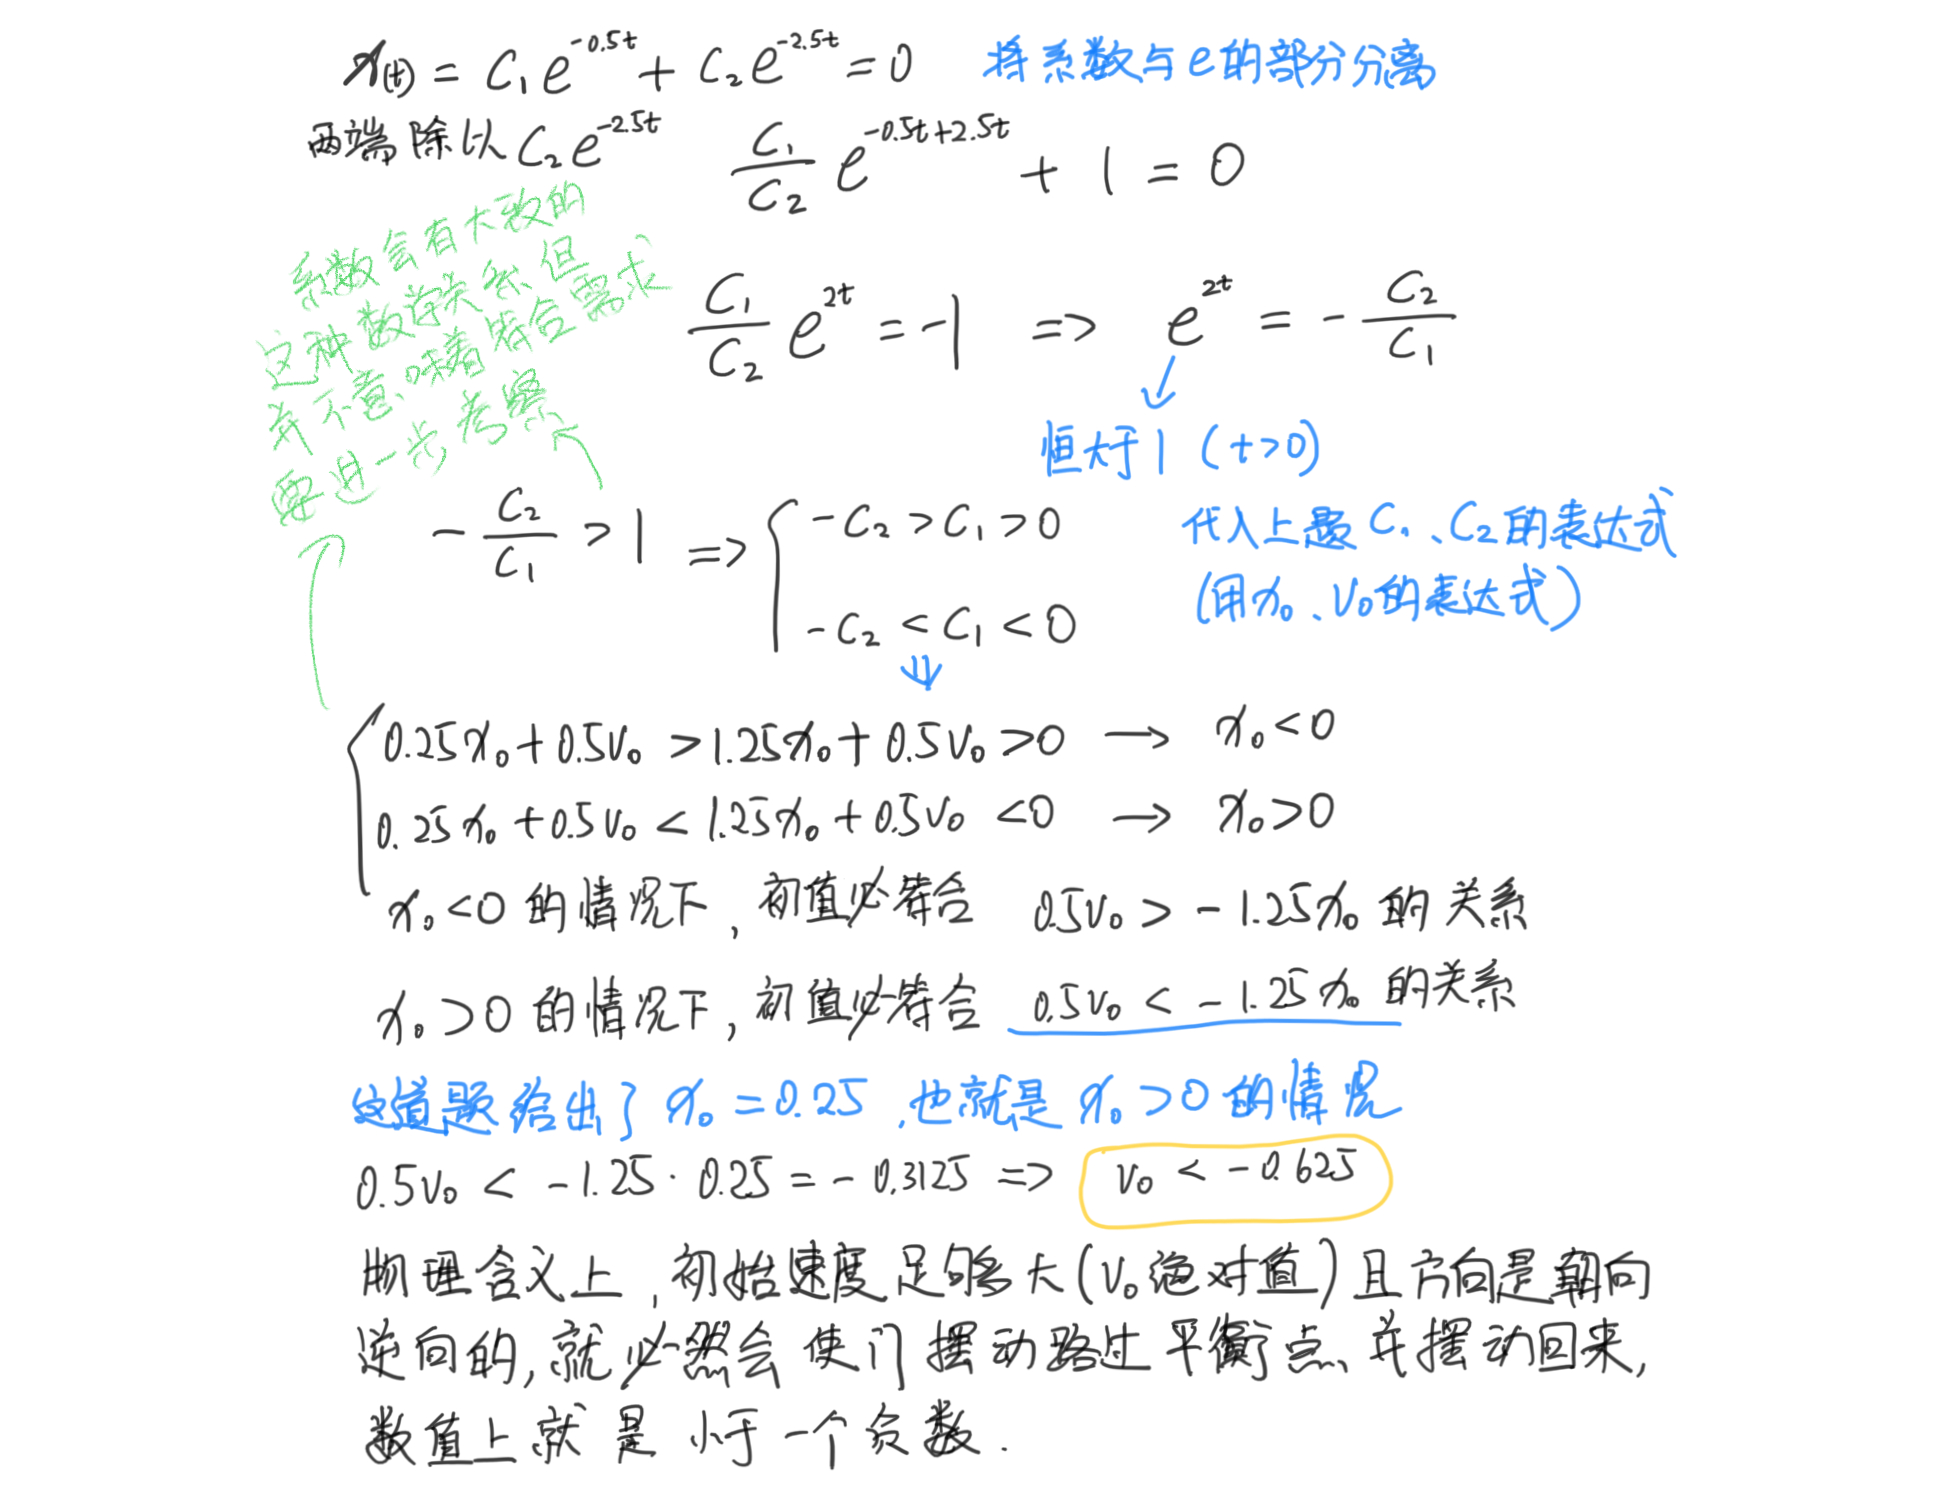 x(t) = C₁e^{-0.5t} + C₂e^{-2.5t} = 0 将系数与e的部分分离
两端除以 C₂e^{-2.5t} C₁/C₂ e^{-0.5t+2.5t} + 1 = 0
系数会有大致的
这种数学关系,但
并不意味着符合需求
要进一步考察
C₁/C₂ e^{2t} = -1 => e^{2t} = - C₂/C₁
恒大于1 (t>0)
- C₂/C₁ > 1 => { -C₂ > C₁ > 0
-C₂ < C₁ < 0
代入上题 C₁、C₂的表达式
(用x₀、v₀的表达式)
{ 0.25x₀ + 0.5v₀ > 1.25x₀ + 0.5v₀ > 0 → x₀ < 0
0.25x₀ + 0.5v₀ < 1.25x₀ + 0.5v₀ < 0 → x₀ > 0
x₀<0 的情况下, 初值必符合 0.5v₀ > -1.25x₀ 的关系
x₀>0 的情况下, 初值必符合 0.5v₀ < -1.25x₀ 的关系
这道题给出了 x₀ = 0.25 ,也就是 x₀>0 的情况
0.5v₀ < -1.25 · 0.25 = -0.3125 => v₀ < -0.625
物理含义上, 初始速度足够大(v₀绝对值)且方向是朝向
逆向的, 就必然会使门摆动路过平衡点、并摆动回来,
数值上就是小于一个负数.